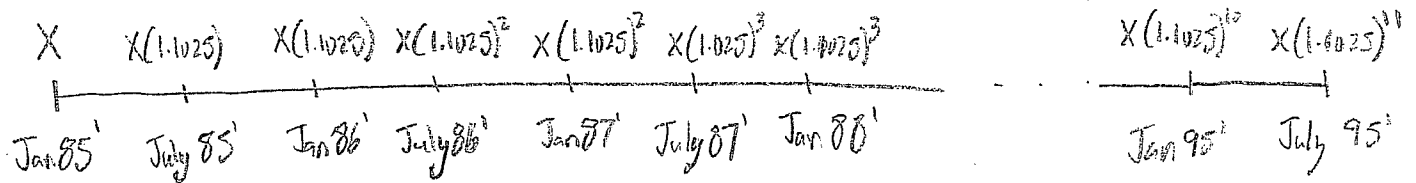 X X(1.1025) X(1.1025) X(1.1025)² X(1.1025)² X(1.1025)³ X(1.1025)³ . . X(1.1025)¹⁰ X(1.1025)¹¹
Jan 85' July 85' Jan 86' July 86' Jan 87' July 87' Jan 88' Jan 95' July 95'